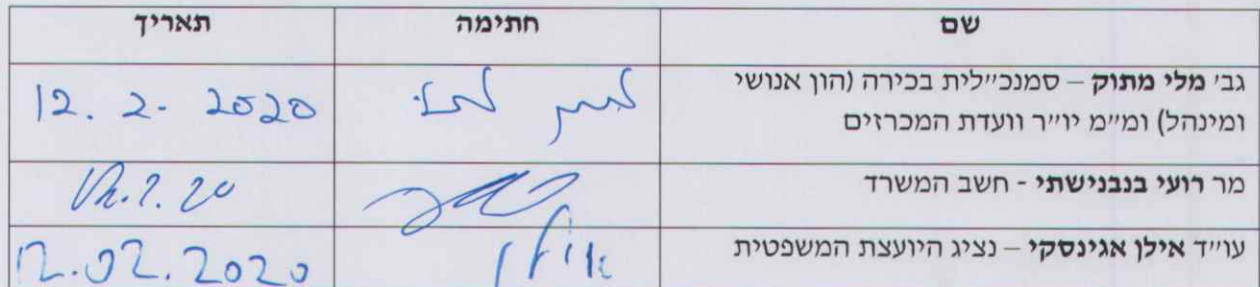 שם חתימה תאריך
גב׳ מלי מתוק – סמנכ״לית בכירה (הון אנושי 12. 2. 2020
ומינהל) ומ״מ יו״ר וועדת המכרזים
מר רועי בנבנישתי - חשב המשרד
עו״ד אילן אגינסקי – נציג היועצת המשפטית אילן 12.02.2020